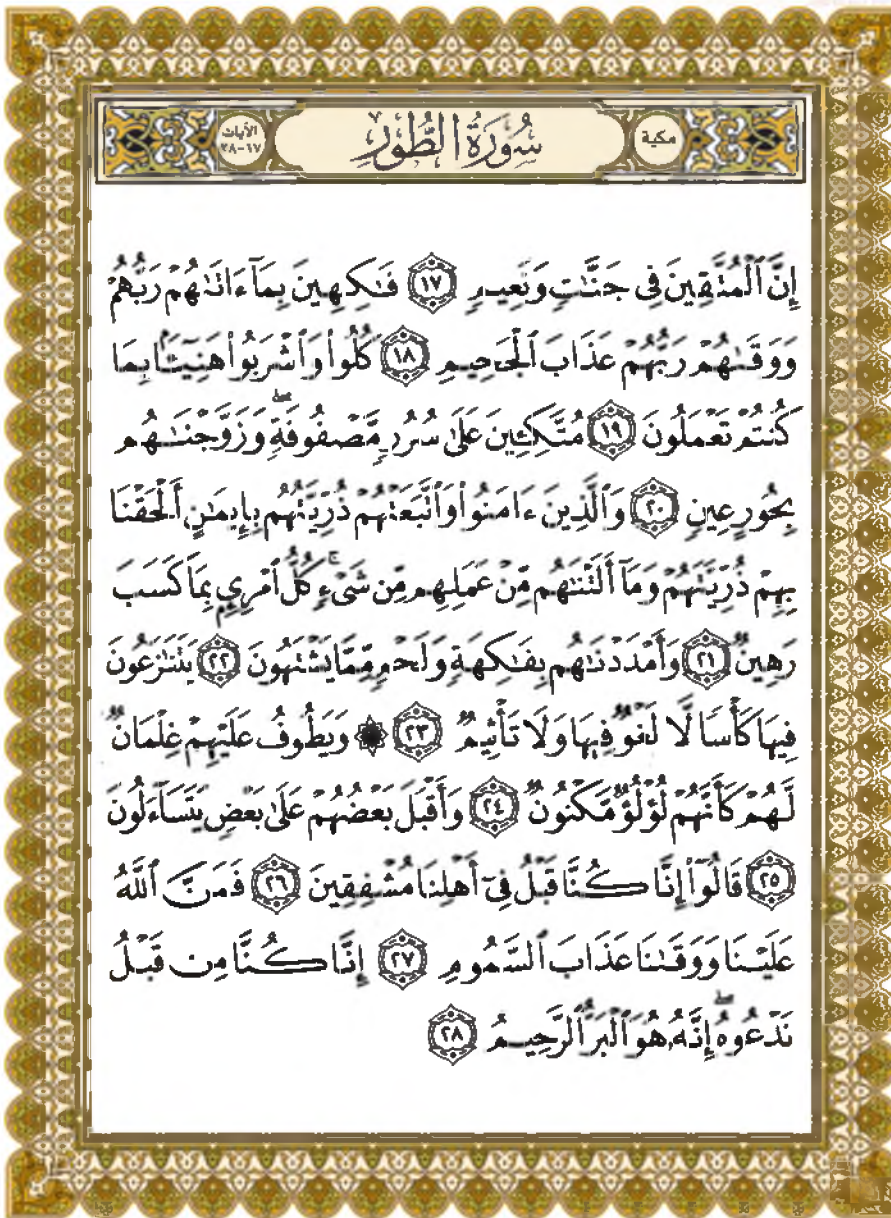 مكية
سُورَةُ الطُّورِ
الآيات
١٧-٢٨
إِنَّ ٱلْمُتَّقِينَ فِى جَنَّٰتٍ وَنَعِيمٍ ١٧ فَٰكِهِينَ بِمَآ ءَاتَىٰهُمْ رَبُّهُمْ
وَوَقَىٰهُمْ رَبُّهُمْ عَذَابَ ٱلْجَحِيمِ ١٨ كُلُوا۟ وَٱشْرَبُوا۟ هَنِيٓـًٔۢا بِمَا
كُنتُمْ تَعْمَلُونَ ١٩ مُتَّكِـِٔينَ عَلَىٰ سُرُرٍ مَّصْفُوفَةٍ ۖ وَزَوَّجْنَٰهُم
بِحُورٍ عِينٍ ٢٠ وَٱلَّذِينَ ءَامَنُوا۟ وَٱتَّبَعَتْهُمْ ذُرِّيَّتُهُم بِإِيمَٰنٍ أَلْحَقْنَا
بِهِمْ ذُرِّيَّتَهُمْ وَمَآ أَلَتْنَٰهُم مِّنْ عَمَلِهِم مِّن شَىْءٍ ۚ كُلُّ ٱمْرِئٍۭ بِمَا كَسَبَ
رَهِينٌ ٢١ وَأَمْدَدْنَٰهُم بِفَٰكِهَةٍ وَلَحْمٍ مِّمَّا يَشْتَهُونَ ٢٢ يَتَنَٰزَعُونَ
فِيهَا كَأْسًا لَّا لَغْوٌ فِيهَا وَلَا تَأْثِيمٌ ٢٣ ۞ وَيَطُوفُ عَلَيْهِمْ غِلْمَانٌ
لَّهُمْ كَأَنَّهُمْ لُؤْلُؤٌ مَّكْنُونٌ ٢٤ وَأَقْبَلَ بَعْضُهُمْ عَلَىٰ بَعْضٍ يَتَسَآءَلُونَ
٢٥ قَالُوٓا۟ إِنَّا كُنَّا قَبْلُ فِىٓ أَهْلِنَا مُشْفِقِينَ ٢٦ فَمَنَّ ٱللَّهُ
عَلَيْنَا وَوَقَىٰنَا عَذَابَ ٱلسَّمُومِ ٢٧ إِنَّا كُنَّا مِن قَبْلُ
نَدْعُوهُ ۖ إِنَّهُۥ هُوَ ٱلْبَرُّ ٱلرَّحِيمُ ٢٨